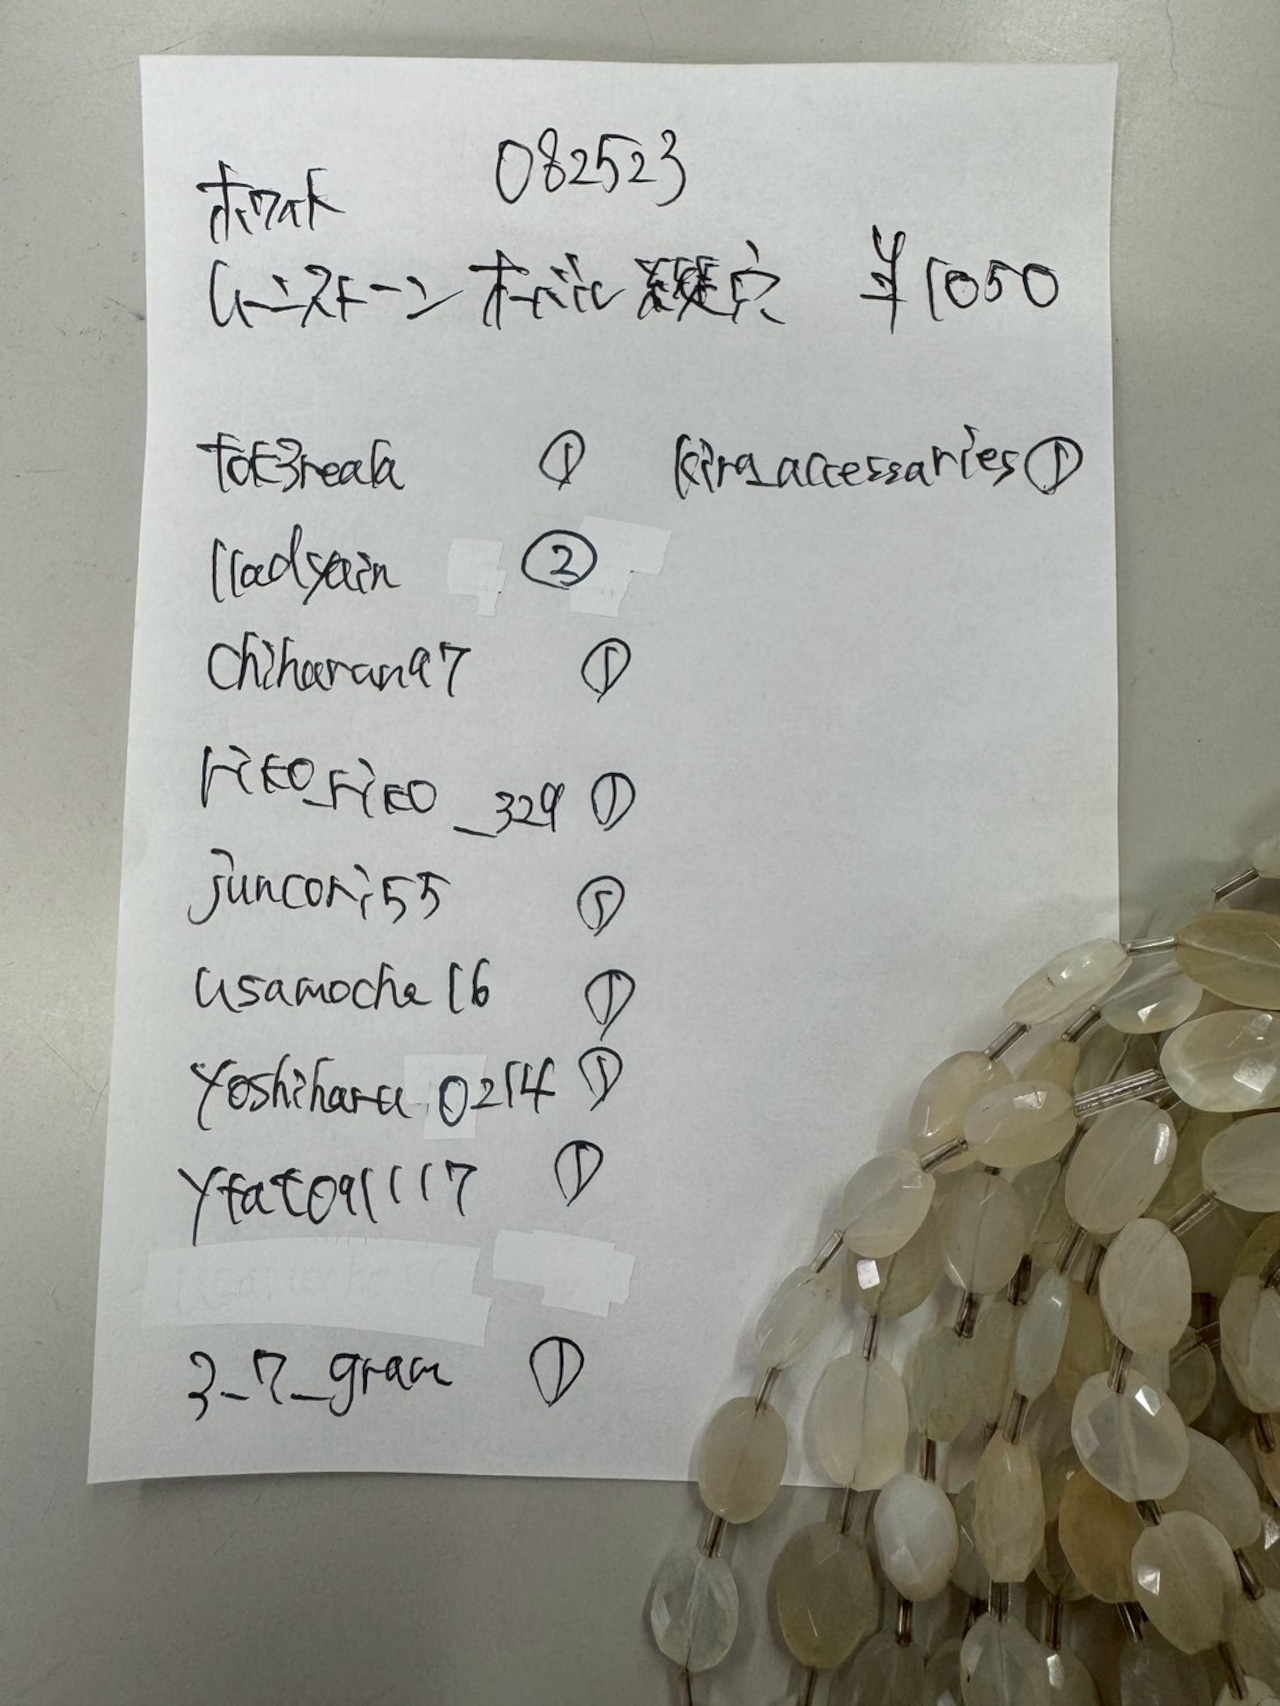 082523
ホワイト
ムーンストーン オーバル 縦穴 ¥1050
tok3reala ①
kira_accessaries ①
lladyain ②
chiharan97 ①
riko_riko_329 ①
juncori55 ①
usamocha16 ①
yoshiharu0214 ①
yfat091117 ①
3_7_gram ①